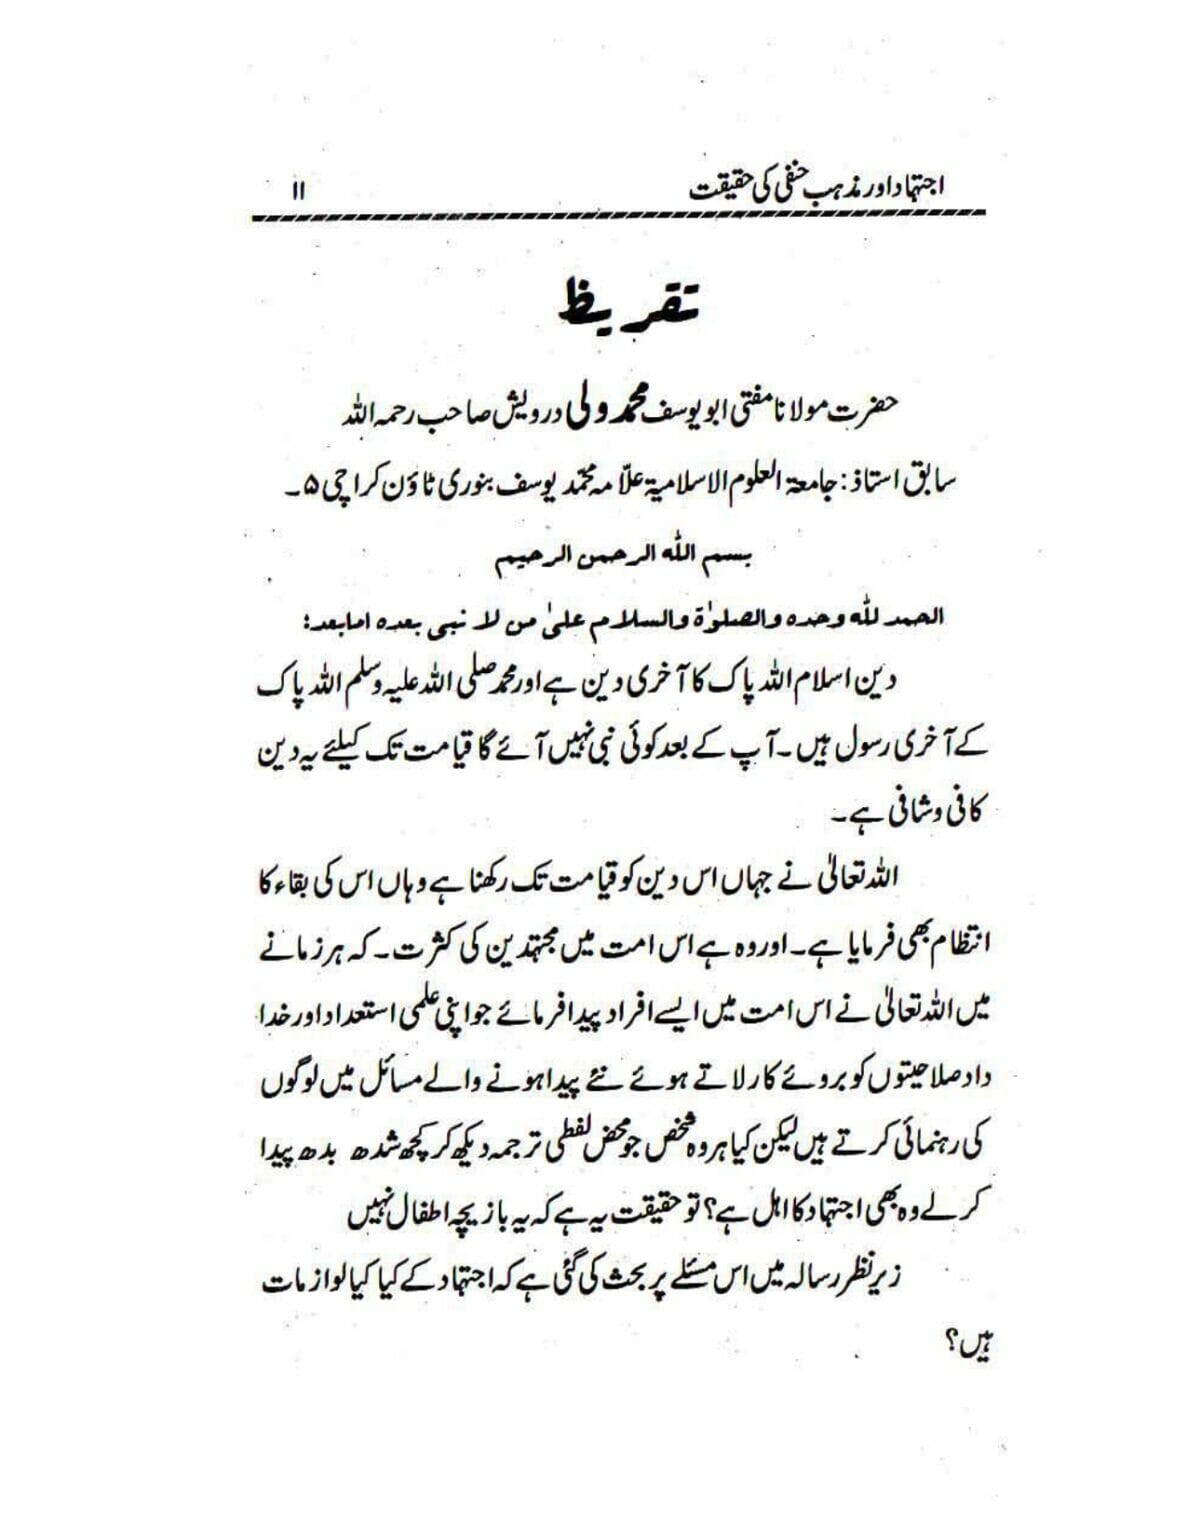 اجتہاد اور مذہب حنفی کی حقیقت ۱۱
تقریظ
حضرت مولانا مفتی ابو یوسف محمد ولی درویش صاحب رحمہ اللہ
سابق استاذ: جامعۃ العلوم الاسلامیۃ علّامہ محمّد یوسف بنوری ٹاؤن کراچی ۵۔
بسم اللہ الرحمن الرحیم
الحمد للّٰہ وحدہ والصلوٰۃ والسلام علیٰ من لا نبی بعدہ امابعد:
دین اسلام اللہ پاک کا آخری دین ہے اور محمد صلی اللہ علیہ وسلم اللہ پاک
کے آخری رسول ہیں۔ آپ کے بعد کوئی نبی نہیں آئے گا قیامت تک کیلئے یہ دین
کافی وشافی ہے۔
اللہ تعالیٰ نے جہاں اس دین کو قیامت تک رکھنا ہے وہاں اس کی بقاء کا
انتظام بھی فرمایا ہے۔ اور وہ ہے اس امت میں مجتہدین کی کثرت۔ کہ ہر زمانے
میں اللہ تعالیٰ نے اس امت میں ایسے افراد پیدا فرمائے جو اپنی علمی استعداد اور خدا
داد صلاحیتوں کو بروئے کار لاتے ہوئے نئے پیدا ہونے والے مسائل میں لوگوں
کی رہنمائی کرتے ہیں لیکن کیا ہر وہ شخص جو محض لفظی ترجمہ دیکھ کر کچھ شدھ بدھ پیدا
کرلے وہ بھی اجتہاد کا اہل ہے؟ تو حقیقت یہ ہے کہ یہ بازیچہ اطفال نہیں
زیر نظر رسالہ میں اس مسئلے پر بحث کی گئی ہے کہ اجتہاد کے کیا کیا لوازمات
ہیں؟